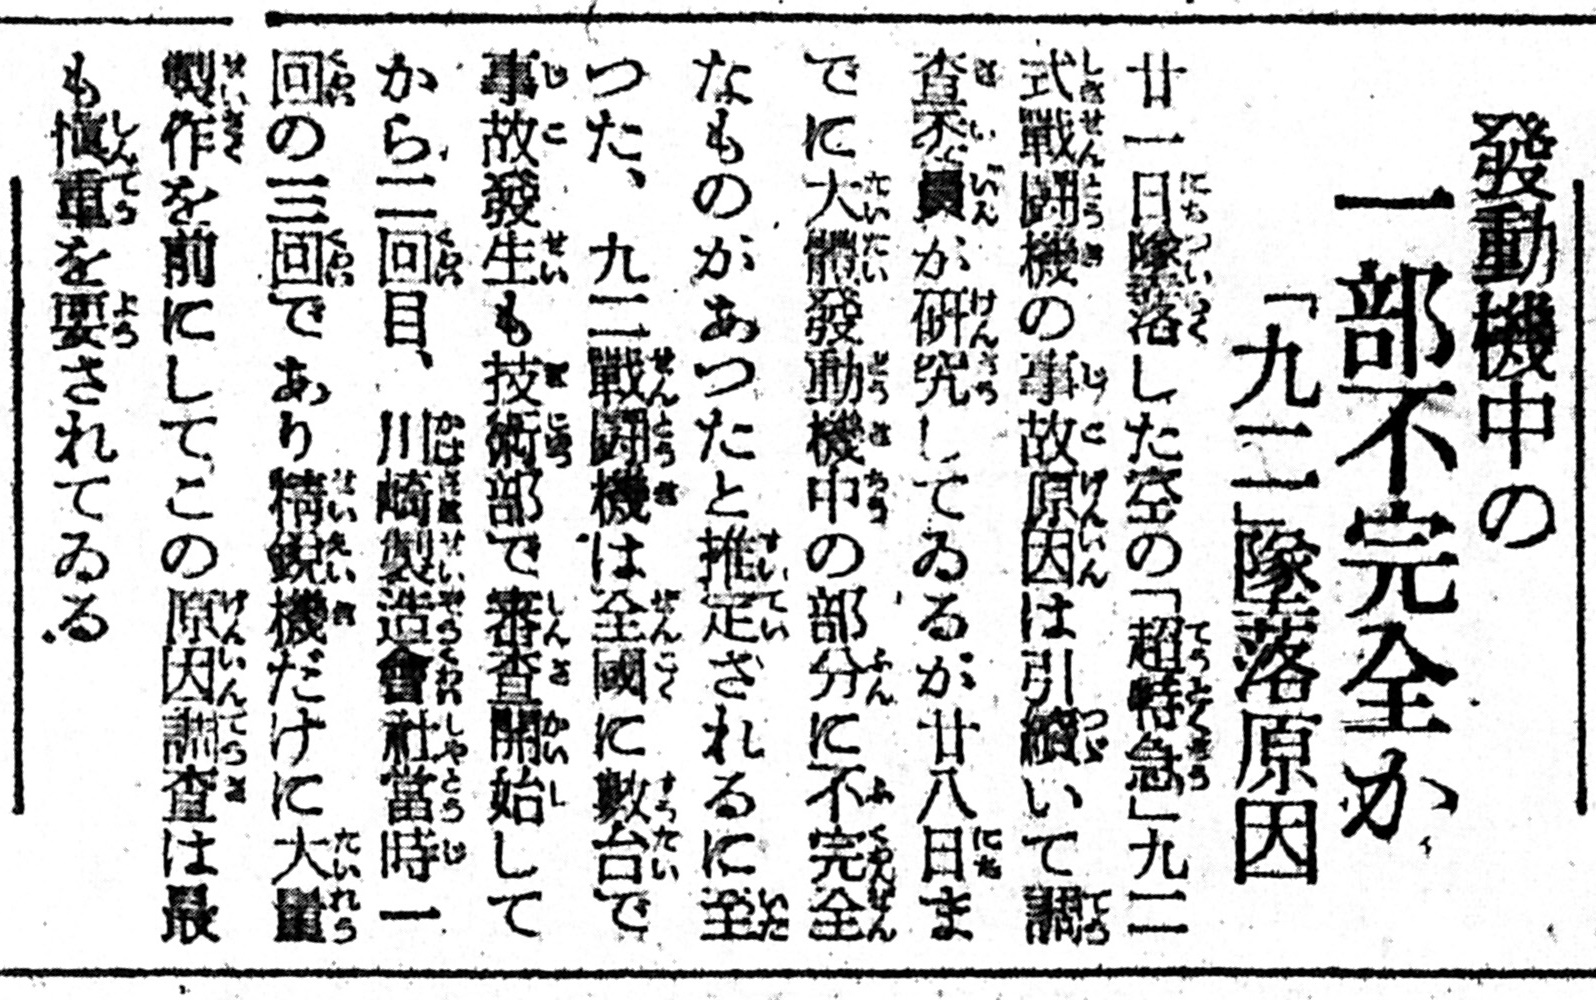 發動機中の
一部不完全か
「九二」墜落原因
廿一日墜落した空の「超特急」九二
式戰鬪機の事故原因は引續いて調
査委員が研究してゐるが廿八日ま
でに大體發動機中の部分に不完全
なものがあつたと推定されるに至
つた、九二戰鬪機は全國に數台で
事故發生も技術部で審査開始して
から二回目、川崎製造會社當時一
回の三回であり精鋭機だけに大量
製作を前にしてこの原因調査は最
も愼重を要されてゐる